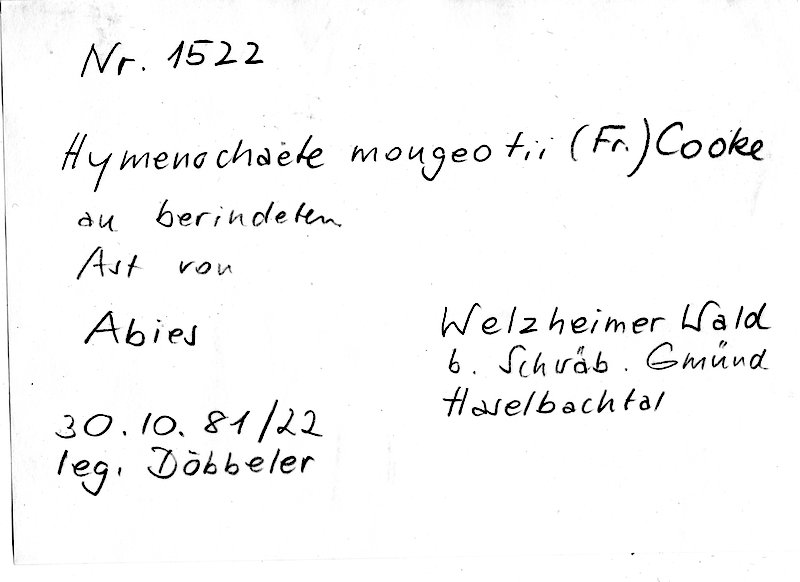 Nr. 1522
Hymenochaete mougeotii (Fr.) Cooke
an berindeten
Ast von
Abies
Welzheimer Wald
b. Schwäb. Gmünd
Haselbachtal
30.10.81/22
leg. Döbbeler